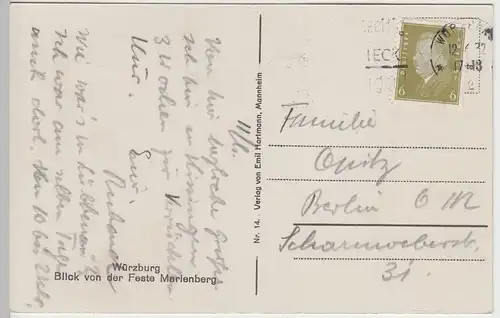 11/6.
Von hier herzliche Grüße.
Ich bin in Kissingen
3 Wochen zur
Kur.
Euer
Wie war's in Lübbenau?
Ich war am selben Tage
auch dort. Von 10 bis 2
Würzburg
Blick von der Feste Marienberg
Nr. 14. Verlag von Emil Hartmann, Mannheim
6 6
Familie
Opitz
Berlin O
Scharnweberstr.
31.